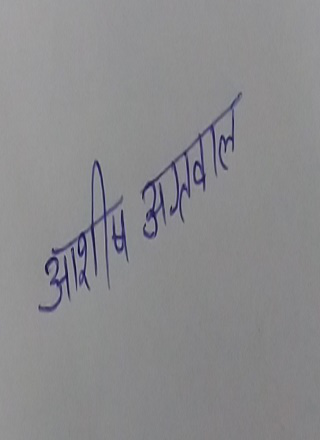 आशीष अग्रवाल